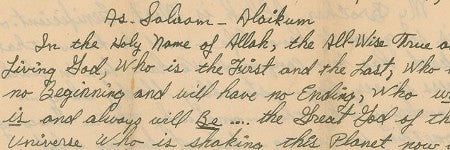 As-Salaam-Alaikum
In the Holy Name of Allah, the All-Wise True a
Living God, Who is the First and the Last, Who
no Beginning and will have no Ending, Who w
is and always will Be .... the Great God of th
Universe Who is shaking this Planet now